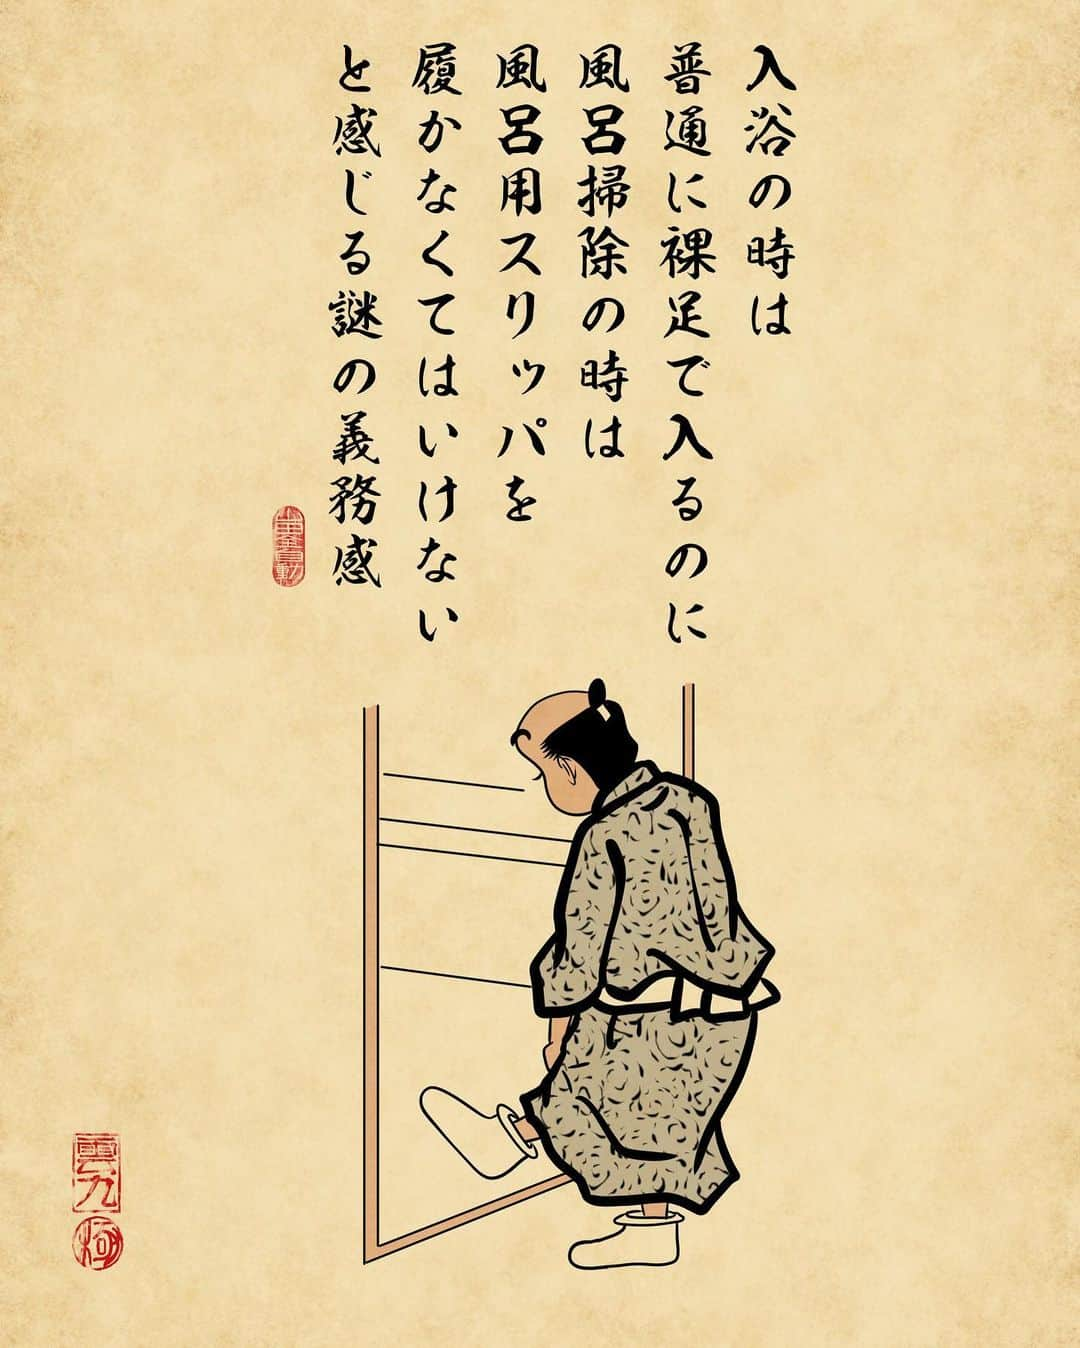 入浴の時は
普通に裸足で入るのに
風呂掃除の時は
風呂用スリッパを
履かなくてはいけない
と感じる謎の義務感